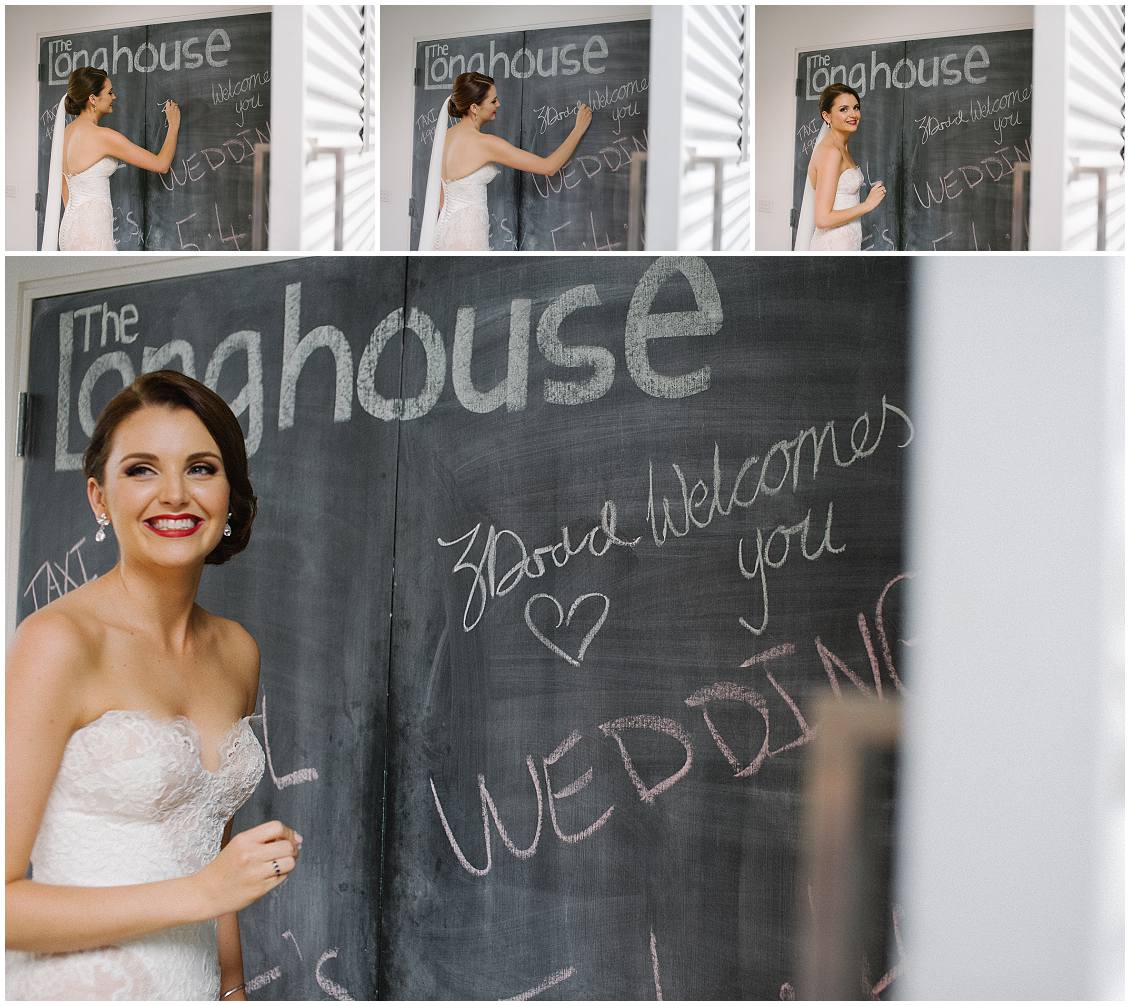 The
Longhouse
Welcome
you
TAXI
WEDDIN
5.4
The
Longhouse
ZDodd Welcomes
you
TAXI
WEDDIN
The
Longhouse
ZDodd Welcomes
you
TAXI
WEDDIN
The
Longhouse
ZDodd Welcomes
you
TAXI
WEDDING